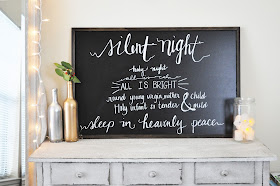 silent night
holy night
all is calm
ALL IS BRIGHT
round young virgin mother & child
Holy infant so tender & mild
sleep in heavenly peace